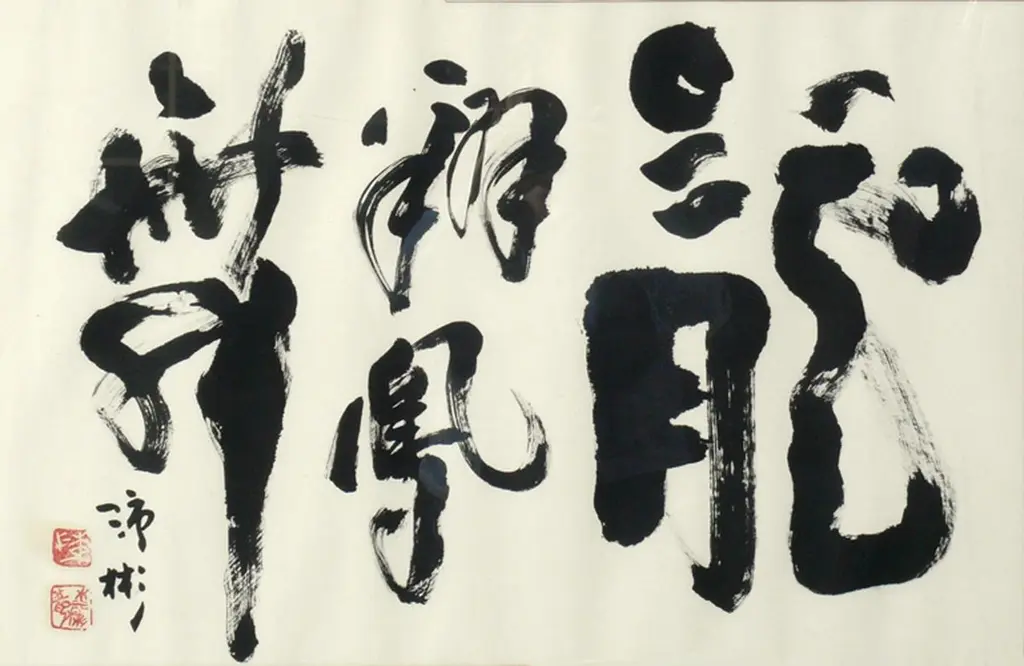 龍
翔鳳
舞
沛彬